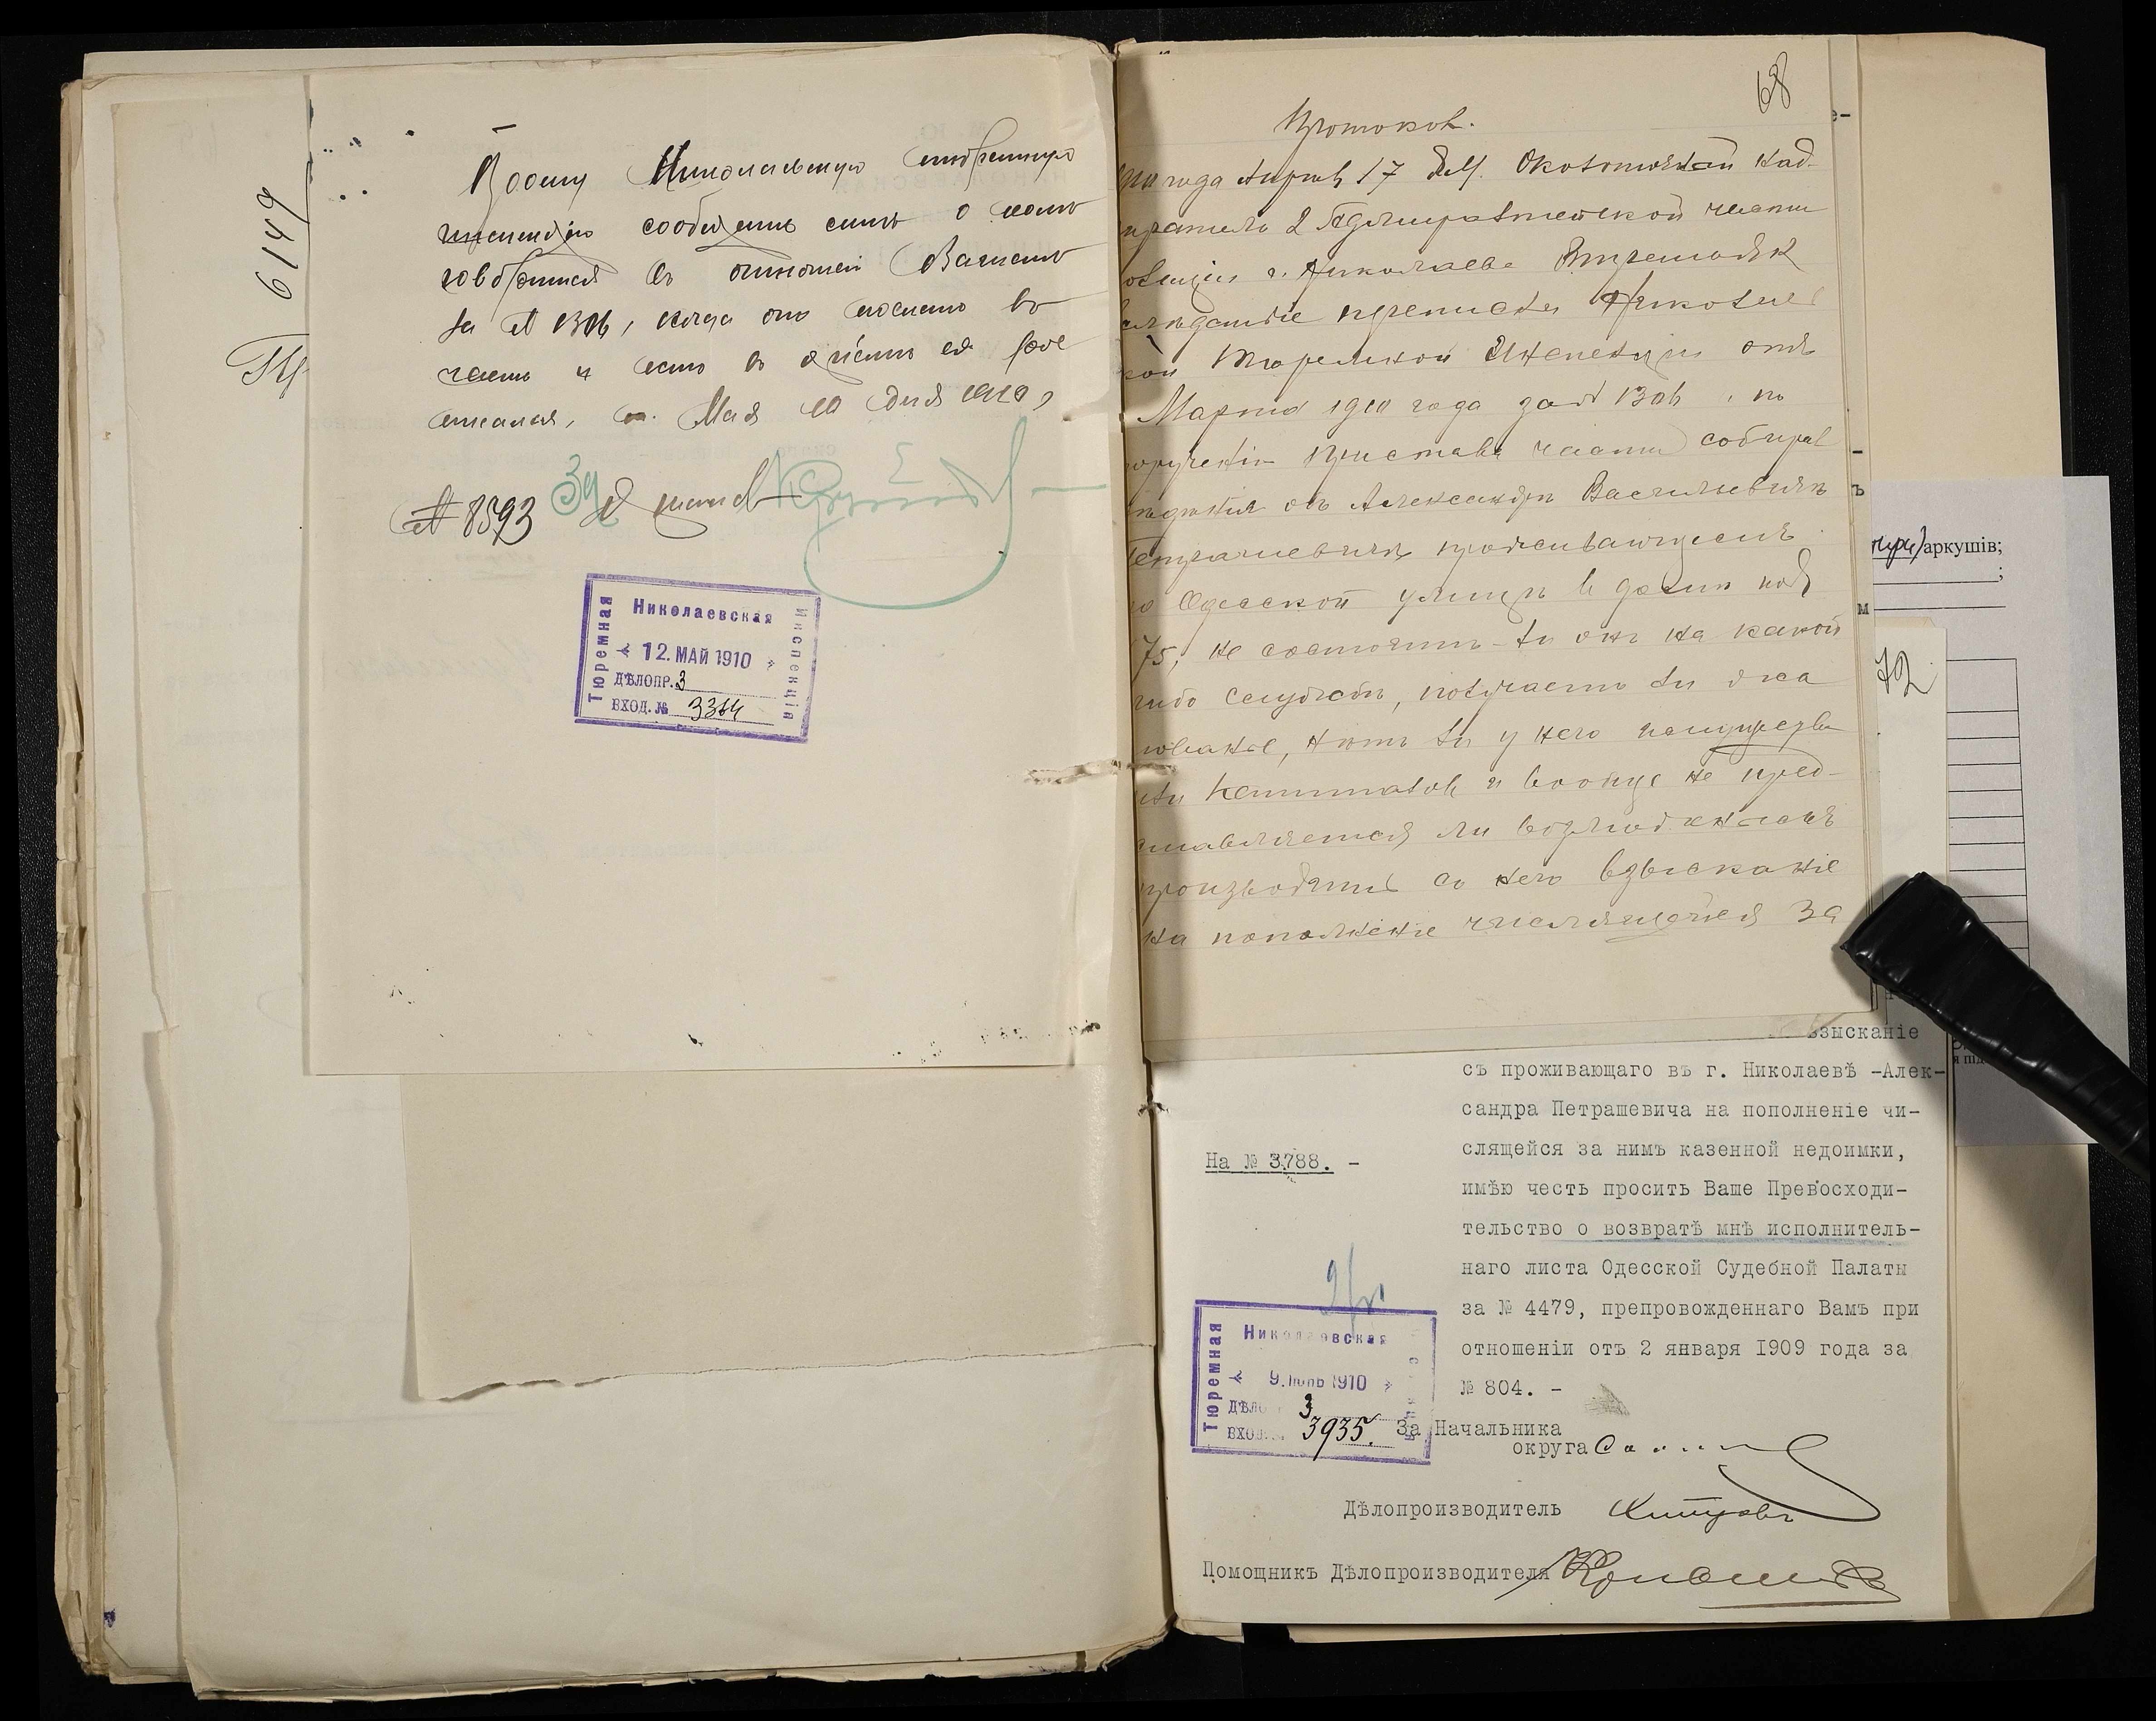 6149
Прошу Николаевскую тюремную
инспекцію сообщить
въ отношеніи Вашемъ
за № 1306, когда оно послано въ
часть и
Мая 10 дня 1910 г.
№ 8593
Николаевская
Тюремная
Инспекція
12. МАЙ 1910
ДѢЛОПР. 3
ВХОД. № 3364
68
Протоколъ.
1910 года Апрѣля 17 дня. Околоточный над-
зиратель 2 Адмиралтейской части
полиціи г. Николаева
вслѣдствіе переписки Николаев
кой Тюремной Инспекціи отъ
Марта 1910 года за № 1306, по
порученію Пристава части собиралъ
свѣдѣнія объ Александрѣ Васильевичѣ
Петрашевичѣ проживающемъ
по Одесской улицѣ въ домѣ подъ
75, не состоитъ-ли онъ на какой
либо службѣ, получаетъ ли жа
лованье, нѣтъ ли у него имущества
или капиталовъ и вообще не пред-
ставляется ли возможнымъ
производить съ него взысканіе
на пополненіе числящейся за
аркушів;
72
взысканіе
съ проживающаго въ г. Николаевѣ -Алек-
сандра Петрашевича на пополненіе чи-
слящейся за нимъ казенной недоимки,
На № 3788. -
имѣю честь просить Ваше Превосходи-
тельство о возвратѣ мнѣ исполнитель-
наго листа Одесской Судебной Палаты
за № 4479, препровожденнаго Вамъ при
отношеніи отъ 2 января 1909 года за
№ 804. -
Николаевская
Тюремная
9. 1910
ДѢЛО 3
ВХОД. 3935.
За Начальника
округа
Дѣлопроизводитель
Помощникъ Дѣлопроизводителя